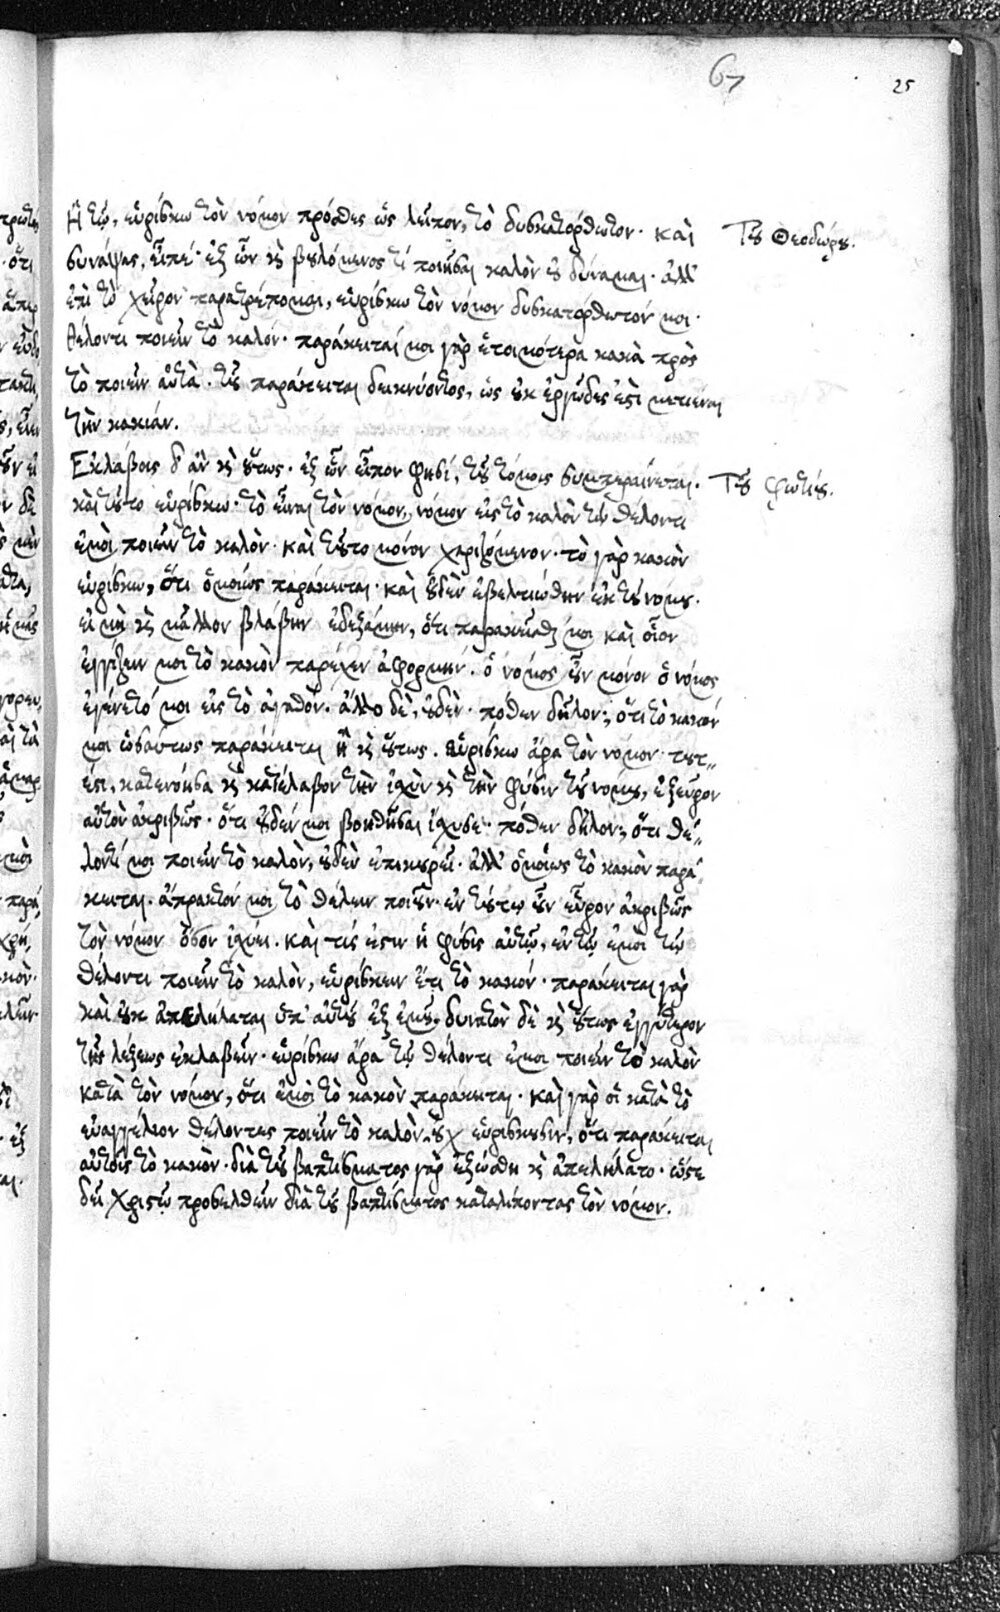 67
25
Ἢ τῷ, εὑρίσκω τὸν νόμον πρόσθες ὡς λεῖπον, τὸ δυσκατόρθωτον· καὶ
Τοῦ Θεοδώρου.
συνάψας, εἰπέ· ἐξ ὧν καὶ βουλόμενος τί ποιῆσαι καλὸν οὐ δύναμαι· ἀλλ'
ἐπὶ τὸ χεῖρον παρατρέπομαι, εὑρίσκω τὸν νόμον δυσκατόρθωτόν μοι·
θέλοντι ποιεῖν τὸ καλόν· παράκειταί μοι γὰρ ἑτοιμότερα κακὰ πρὸς
τὸ ποιεῖν αὐτὰ· τοῦ παράκειται δεικνύοντος, ὡς οὐκ ἐργῶδες ἐστὶ μετιέναι
τὴν κακίαν.
Ἐκλάβοις δ' ἂν καὶ οὕτως· ἐξ ὧν εἶπον φησί, τοῦτό μοις συμπεραίνεται·
Τοῦ Φωτίου.
καὶ τοῦτο εὑρίσκω· τὸ εἶναι τὸν νόμον, νόμον εἰς τὸ καλὸν τῷ θέλοντι
ἐμοὶ ποιεῖν τὸ καλὸν· καὶ τοῦτο μόνον χαριζόμενον· τὸ γὰρ κακὸν
εὑρίσκω, ὅτι ὁμοίως παράκειται· καὶ οὐδὲν ἐβελτιώθην ἐκ τοῦ νόμου·
εἰ μὴ καὶ μᾶλλον βλάβην ἐδεξάμην, ὅτι παρακεῖσθαί μοι καὶ οἷον
ἐγγίζειν μοι τὸ κακὸν παρέχειν ἀφορμήν· ὁ νόμος οὖν μόνον ὁ νόμος
ἐγένετό μοι εἰς τὸ ἀγαθόν· ἄλλο δὲ, οὐδὲν· πόθεν δῆλον; ὅτι τὸ κακόν
μοι ὡσαύτως παράκειται ἢ καὶ οὕτως. εὑρίσκω ἄρα τὸν νόμον· τουτ-
έστι, κατενόησα καὶ κατέλαβον τὴν ἰσχὺν καὶ τὴν φύσιν τοῦ νόμου, ἐξεῦρον
αὐτὸν ἀκριβῶς· ὅτι οὐδέν μοι βοηθῆσαι ἴσχυσε· πόθεν δῆλον; ὅτι θέ-
λοντί μοι ποιεῖν τὸ καλὸν, οὐδὲν ἐπικουρεῖ· ἀλλ' ὁμοίως τὸ κακὸν παρά-
κειται· ἄπρακτόν μοι τὸ θέλειν ποιοῦν· ἐν τούτῳ οὖν εὗρον ἀκριβῶς
τὸν νόμον ὅσον ἰσχύει· καὶ τίς ἐστιν ἡ φύσις αὐτοῦ, ἐν τῷ ἐμοὶ τῷ
θέλοντι ποιεῖν τὸ καλὸν, εὑρίσκειν ἔτι τὸ κακόν· παράκειται γὰρ
καὶ οὐκ ἀπελήλαται ὑπ' αὐτοῦ ἐξ ἐμοῦ· δυνατὸν δὲ καὶ οὕτως ἐγγύτερον
τῆς λέξεως ἐκλαβεῖν· εὑρίσκω ἄρα τῷ θέλοντι ἐμοι ποιεῖν τὸ καλὸν
κατὰ τὸν νόμον, ὅτι ἐμοὶ τὸ κακὸν παράκειται· καὶ γὰρ οἱ κατὰ τὸ
εὐαγγέλιον θέλοντες ποιεῖν τὸ καλὸν, οὐχ εὑρίσκουσιν, ὅτι παράκειται
αὐτοῖς τὸ κακὸν· διὰ τοῦ βαπτίσματος γὰρ ἐξώσθη καὶ ἀπελήλατο· ὥστε
δεῖ Χριστῷ προσελθεῖν διὰ τοῦ βαπτίσματος καταλιπόντας τὸν νόμον.